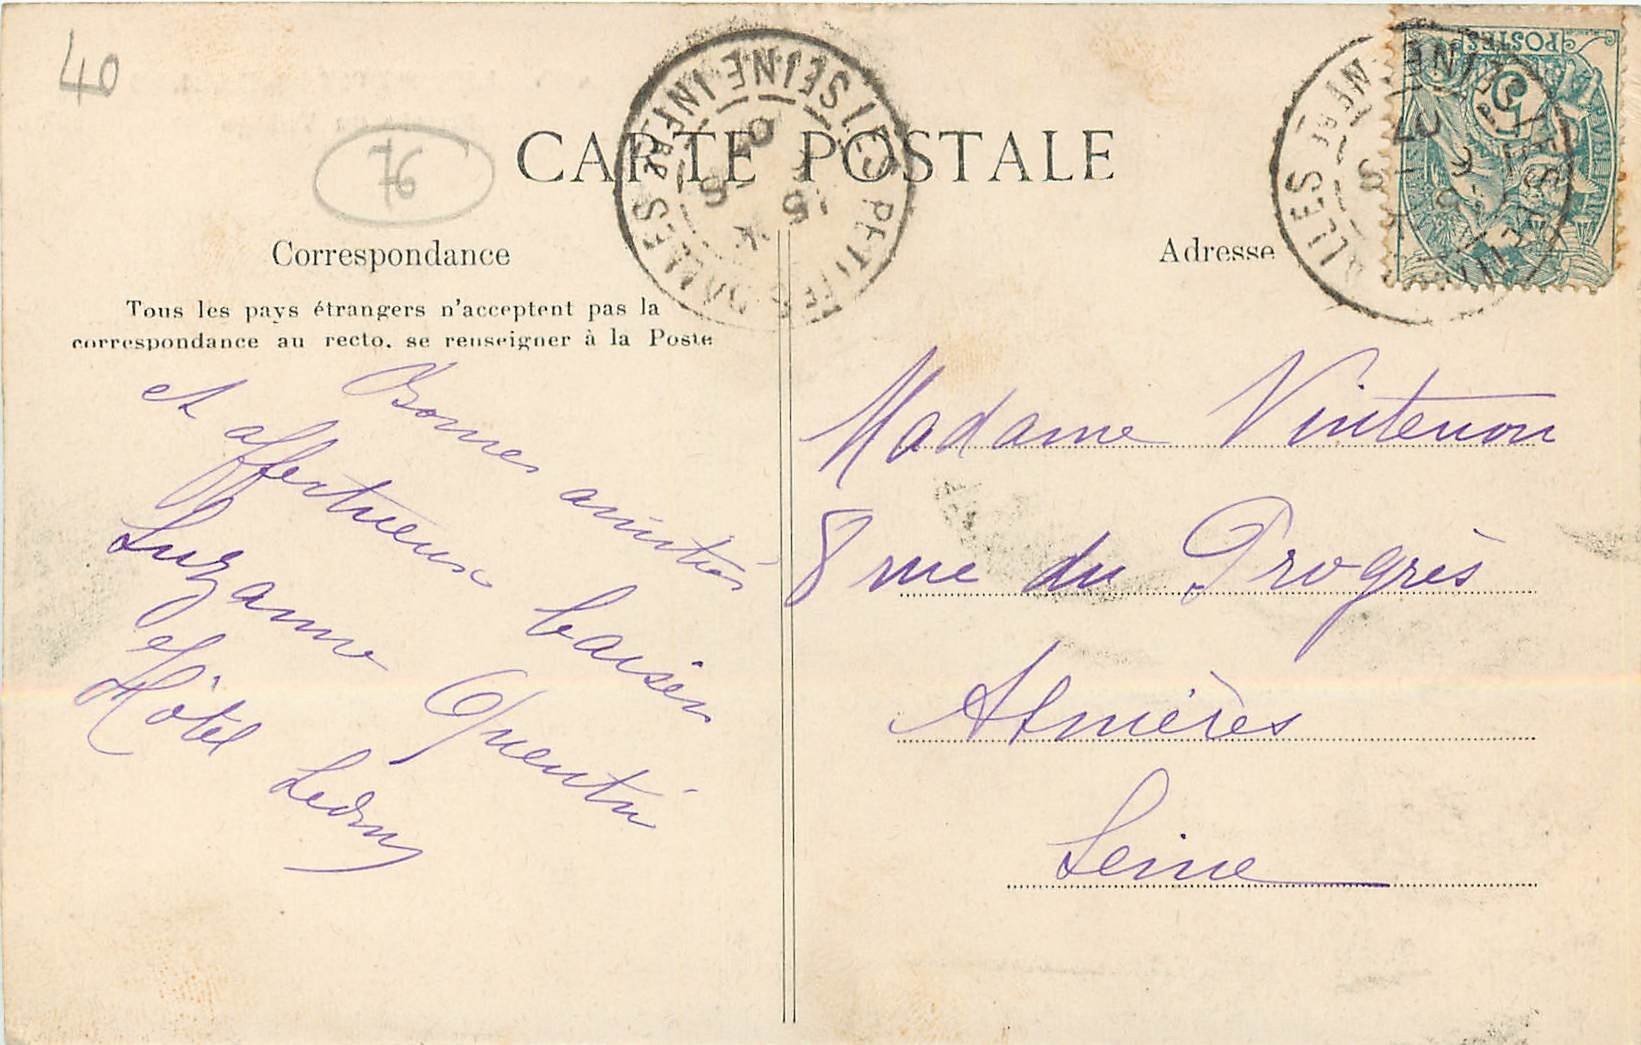 40
76
CARTE POSTALE
Correspondance
Tous les pays étrangers n'acceptent pas la
correspondance au recto, se renseigner à la Poste
Bonnes amitiés
et affectueux baisers
Suzanne Quentin
Hôtel Ledru
LES PETITES DALLES SEINE INFRE
Adresse
POSTES
5
Madame Vintenon
8 rue du Progrès
Asnières
Seine